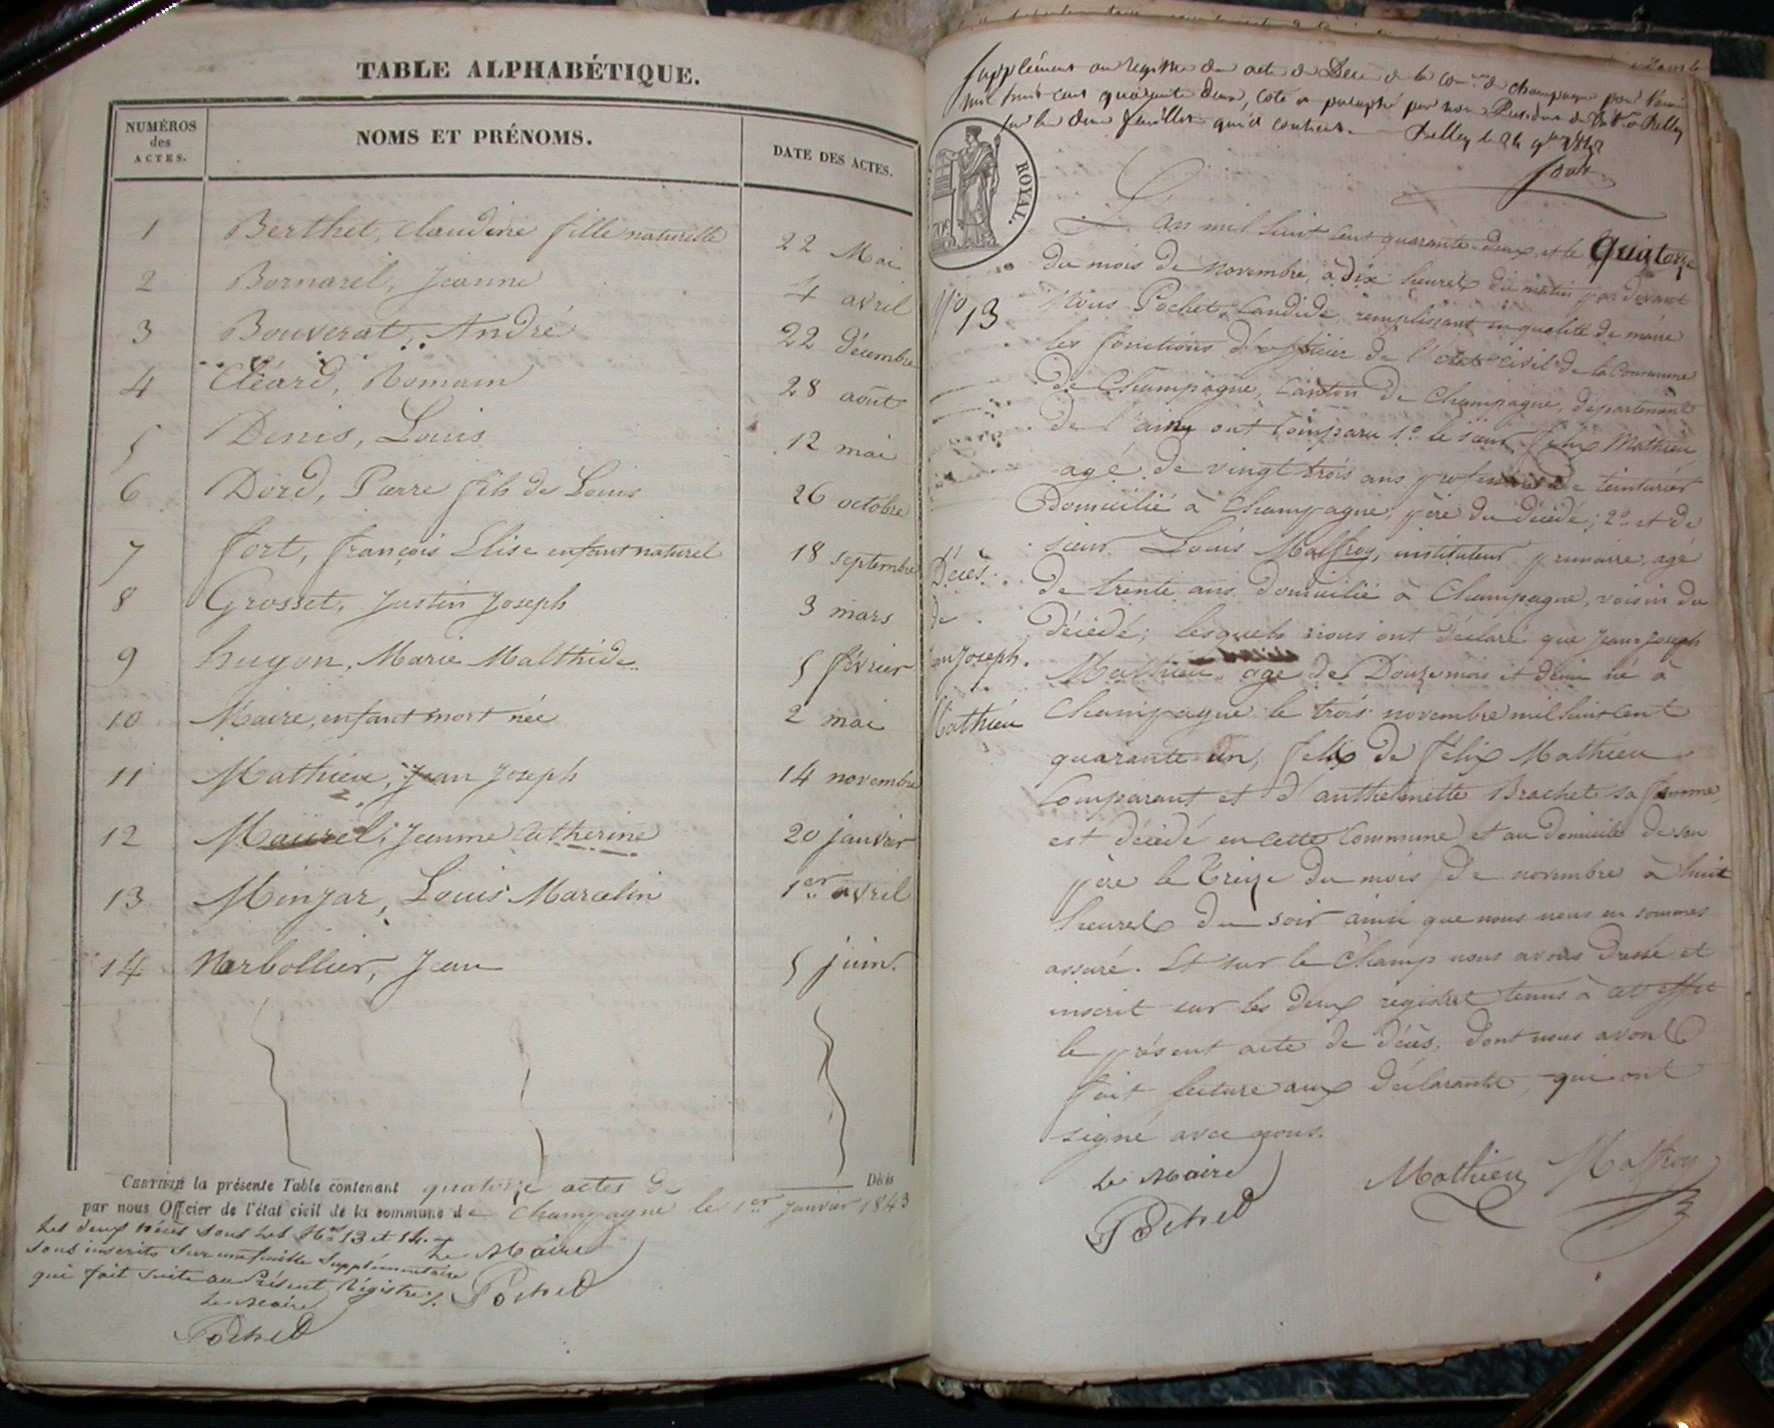 TABLE ALPHABÉTIQUE.
NUMÉROS des ACTES. NOMS ET PRÉNOMS. DATE DES ACTES.
1 Berthet, Claudine fille naturelle 22 Mai
2 Bornarel, Jeanne 4 avril
3 Bouverat, André 22 décembre
4 Cléard, Romain 28 août
5 Denis, Louis 12 mai
6 Dord, Pierre fils de Louis 26 octobre
7 fort, françois Elise enfant naturel 18 septembre
8 Grosset, Justin Joseph 3 mars
9 hugon, Marie Malthide 5 février
10 Maire, enfant mort née 2 mai
11 Mathieu, Jean Joseph 14 novembre
12 Maurel, Jeanne Catherine 20 janvier
13 Minjar, Louis Marcelin 1er avril
14 Narbollier, Jean 5 juin.
CERTIFIÉ la présente Table contenant quatorze actes de Décès
par nous Officier de l'état civil de la commune de Champagne le 1er Janvier 1843
Les deux décès sous les Nos 13 et 14.
sous inscrits sur une feuille supplémentaire
qui fait suite au Présent Régistre.
Le Maire
Pochet
Le Maire
Pochet
Supplément au registre des actes de Décès de la comne de champagne pour l'année
mil huit cent quarante deux, coté et paraphé par nous Président du à Belley
sur les deux feuillets qu'il contient. Belley le 24 9bre 1842
ROYAL.
L'an mil huit cent quarante-deux, et le Quatorze
du mois de Novembre, à dix heures du matin par devant
No 13 Nous Pochet, Candide, remplissant en qualité de maire
les fonctions d'officier de l'état civil de la Commune
de Champagne, Canton de Champagne, département
de l'ain, ont comparu 1o le sieur félix Mathieu
agé de vingt trois ans profession de teinturier
Domicilié à Champagne, père du décédé; 2o et de
sieur Louis Malfroy, instituteur primaire, agé
Décès de trente ans domicilié à Champagne, voisin du
de décédé; lesquels nous ont déclaré que Jean Joseph
Jean Joseph. Mathieu agé de Douze mois et demi né à
Mathieu Champagne le trois novembre mil huit cent
quarante un, fils de félix Mathieu
Comparant et d'anthelmette Brachet sa femme,
est décédé en cette Commune et au domicile de son
père le treize du mois de novembre à huit
heures du soir ainsi que nous nous en sommes
assuré. Et sur le Champ nous avons Dressé et
inscrit sur les deux registres tenus à cet effet
le présent acte de décès, dont nous avons
fait lecture aux déclarants, qui ont
signé avec nous.
Le Maire
Pochet
Mathieu Malfroy